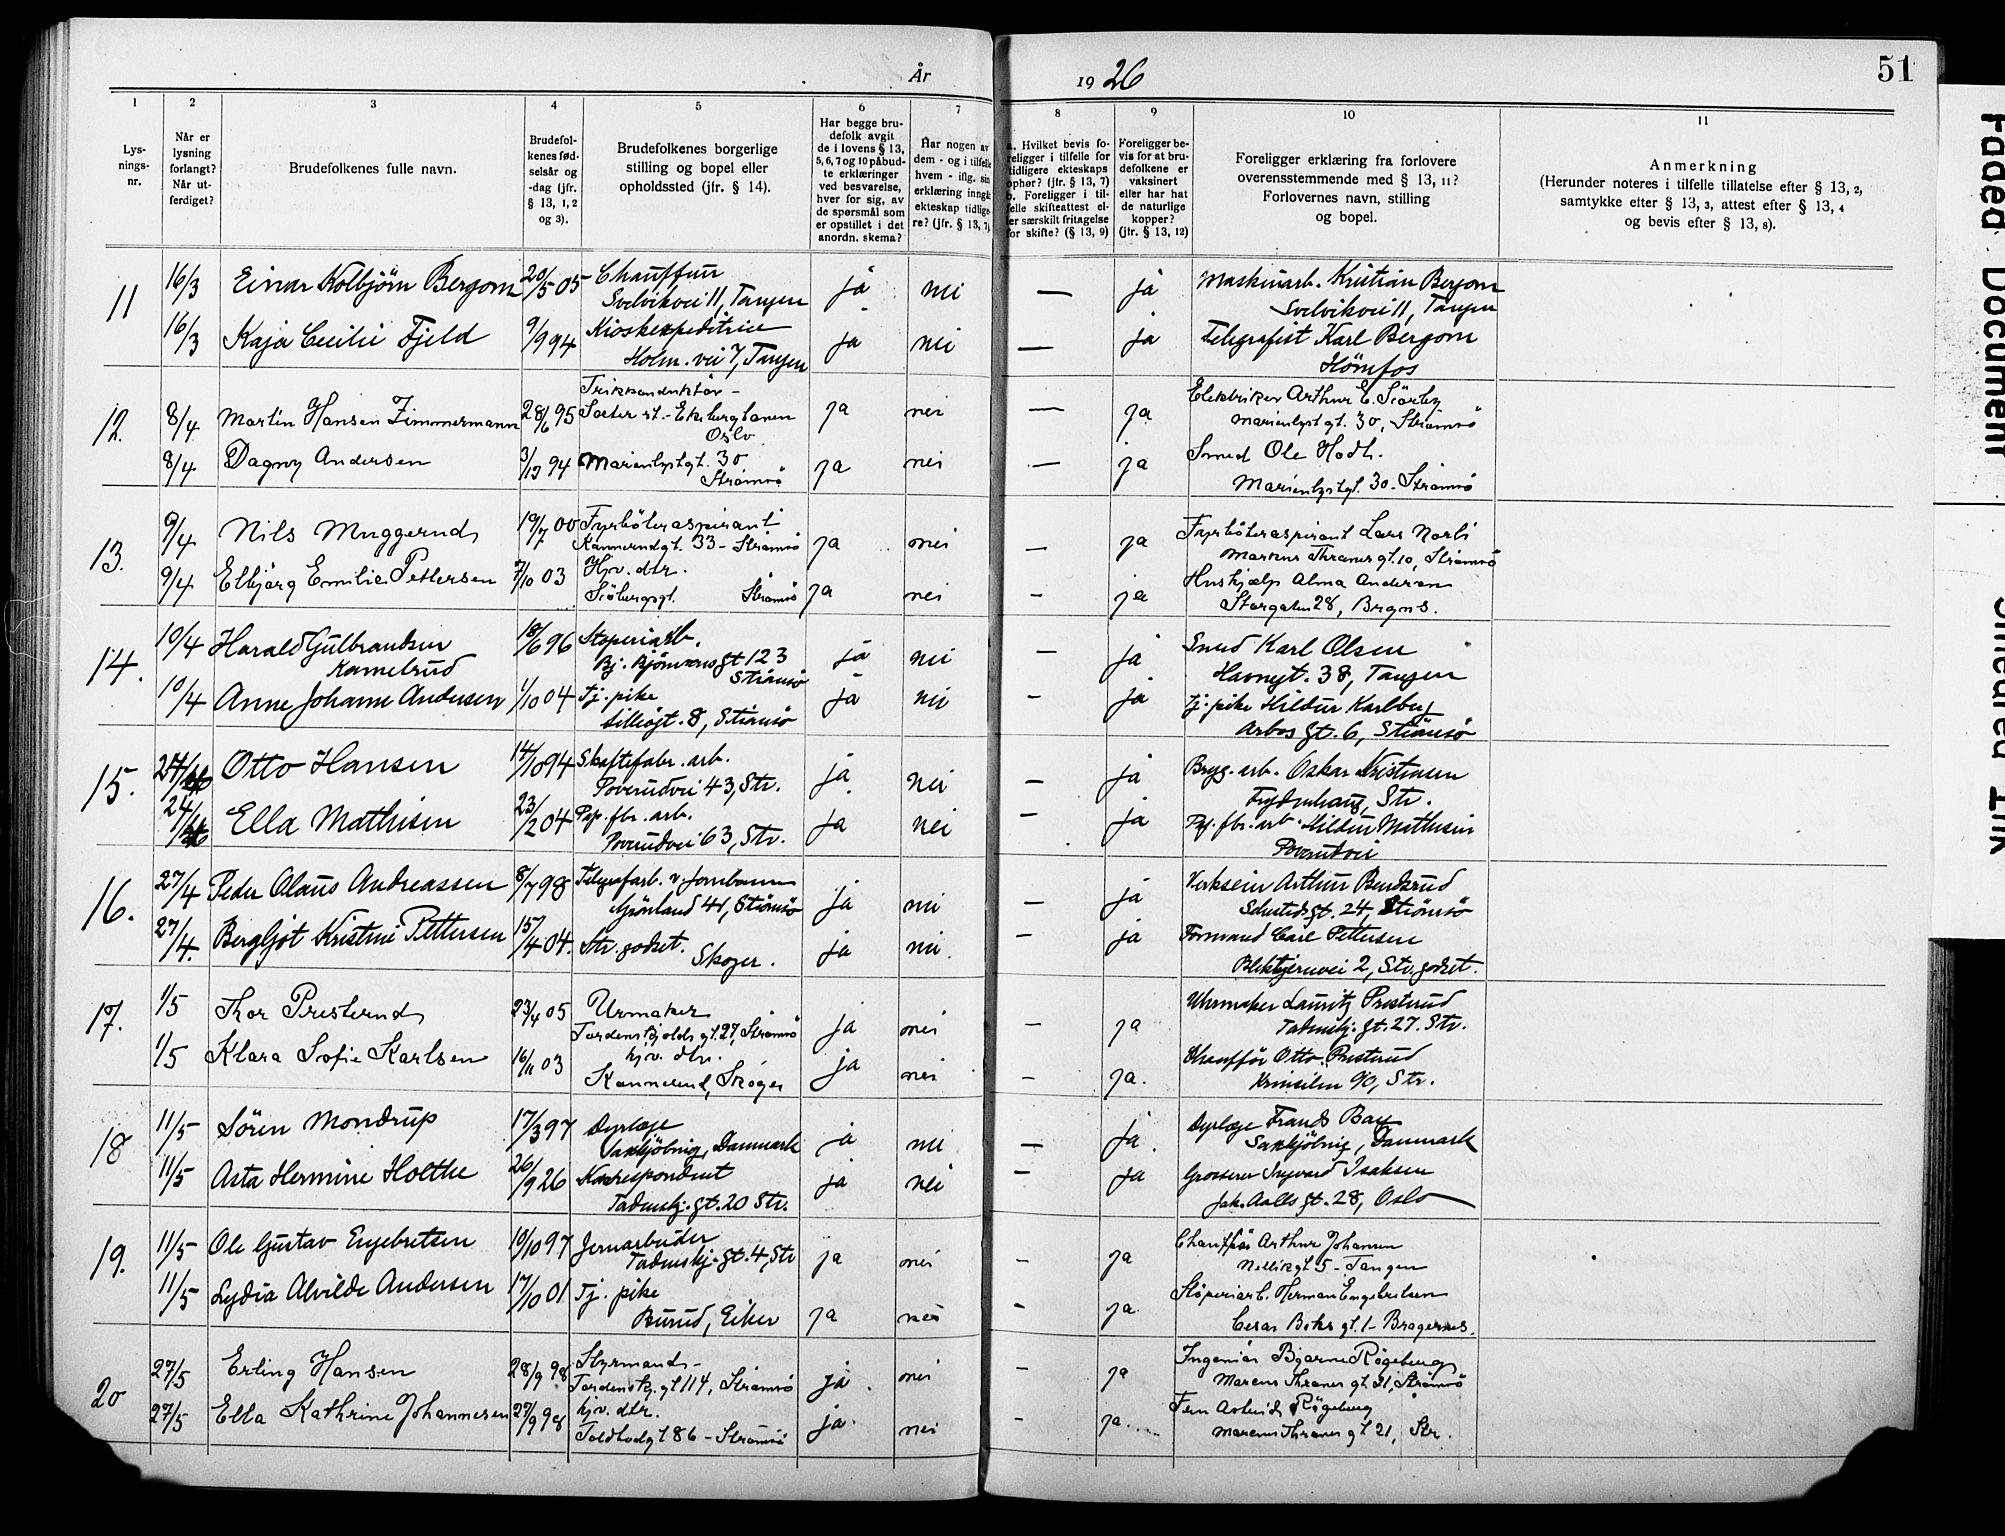 År 1926
51
1 2 3 4 5 6 7 8 9 10 11
Lysningsnr.
Når er lysning forlangt? Når utferdiget?
Brudefolkenes fulle navn.
Brudefolkenes fødselsår og -dag (jfr. § 13, 1, 2 og 3).
Brudefolkenes borgerlige stilling og bopel eller opholdssted (jfr. § 14).
Har begge brudefolk avgit de i lovens § 13, 5, 6, 7 og 10 påbudte erklæringer ved besvarelse, hver for sig, av de spørsmål som er opstillet i det anordn. skema?
Har nogen av dem - og i tilfelle hvem - iflg. sin erklæring inngått ekteskap tidligere? (jfr. § 13, 7)
a. Hvilket bevis foreligger i tilfelle for tidligere ekteskaps ophør? (jfr. § 13, 7) b. Foreligger i tilfelle skifteattest eller særskilt fritagelse for skifte? (§ 13, 9)
Foreligger bevis for at brudefolkene er vaksinert eller har hat de naturlige kopper? (jfr. § 13, 12)
Foreligger erklæring fra forlovere overensstemmende med § 13, 11? Forlovernes navn, stilling og bopel.
Anmerkning (Herunder noteres i tilfelle tillatelse efter § 13, 2, samtykke efter § 13, 3, attest efter § 13, 4 og bevis efter § 13, 8).
11 16/3 Einar Kolbjörn Bergom 20/5 05 Chauffur ja nei — ja Maskinarb. Kristian Bergom
Svelvikvei 11, Tangen Svelvikvei 11, Tangen
16/3 Kaja Cecilie Fjeld 9/9 94 Kioskexpeditrice ja nei — ja Telegrafist Karl Bergom
Holm. vei 7, Tangen Hönefos
12. 8/4 Martin Hansen Zimmermann 28/6 95 Trikkonduktör - ja nei — ja Elektriker Arthur E. Sörby
Sæter st. - Ekebergbanen Marienlystgt. 30, Strömsö
Oslo
8/4 Dagny Andersen 3/12 94 Marienlystgt. 30 ja nei — ja Smed Ole Hodt.
Strömsö Marienlystgt. 30. Strömsö
13. 9/4 Nils Muggerud 19/7 00 Fyrböteraspirant ja nei — ja Fyrböteraspirant Lars Norli
33 - Strömsö Marcus Thranes gt. 10, Strömsö
9/4 Elbjörg Emilie Pettersen 7/10 03 Hjv. dtr. ja nei - ja Huskjælp Alma Andersen
Siöbergsgt. Strömsö Storgaten 28, Bragnes.
14. 10/4 Harald Gulbrandsen 18/6 96 Stöperiarb. ja nei - ja Smed Karl Olsen
Kamelrud Bj. Björnsons gt 123 Havnegt. 38, Tangen
Strömsö
10/4 Anne Johanne Andersen 1/10 04 Tj. pike ja nei - ja Tj. pike Hildur Karlberg
8, Strömsö Arbos gt. 6, Strömsö
15. 24/4 Otto Hansen 14/10 94 Skaftefabr. arb. ja nei — ja Bryg. arb. Oskar Kristiansen
Poverudvei 43, Str. Frydenhaug, Str.
24/4 Ella Mathisen 23/2 04 Pap. fbr. arb. ja nei - ja Pap. fbr. arb. Hildur Mathisen
Poverudvei 63, Str. Poverudvei
16. 27/4 Peder Olaus Andreassen 8/7 98 Telegrafarb. v. jernbanen ja nei — ja Verkseier Arthur Bendsrud
Grönland 41, Strömsö Schestedsgt. 24, Strömsö
27/4. Bergljot Kristine Pettersen 15/4 04. Str. godset. ja nei. - ja Formand Carl Pettersen
Skoger. Blektjernvei 2, Str. godset.
17. 1/5 Thor Presterud 23/4 05 Urmaker ja nei - ja Uhrmaker Lauritz Presterud
Tordenskjolds gt. 27, Strömsö Tordenskj. gt. 27. Str.
1/5 Klara Sofie Karlsen 16/11 03 hjv. dtr. ja nei - ja. Chafför Otto Presterud
Skoger 90, Str.
18 11/5 Sören Mondrup 17/3 97 Dyrlæge ja nei — ja. Dyrlæge Frands Bay
Saxkjöbing, Danmark Saxkjöbing, Danmark
11/5 Asta Hermine Holthe 26/9 26 Korrespondent ja nei - ja Grosserer Ingvard Isaksen
Tordenskj. gt. 20 Str. Jak. Aalls gt. 28, Oslo
19. 11/5 Ole Gustav Engebretsen 10/10 97 Jernarbeider ja nei - ja Chafför Arthur Johansen
Tordenskj. gt. 4, Str Nellikgt. 5 - Tangen
11/5 Lydia Alvilde Andersen 17/10 01 Tj. pike ja nei - ja. Stöperiarb. Herman Engebretsen
Burud, Eiker Cesar Boks gt. 1 - Bragernes.
20 27/5 Erling Hansen 28/9 98 Styrmand - ja. nei - ja Ingeniör Bjarne Rögeberg
Tordenskj. gt 114, Strömsö Marcus Thranes gt. 21, Strömsö
27/5 Ella Kathrine Johannesen 27/9 98 hjv. dtr. ja. nei - ja. Astrid Rögeberg
Toldbodgt 86 - Strömsö Marcus Thranes gt 21, Str.
Faded Document
Smeared Ink